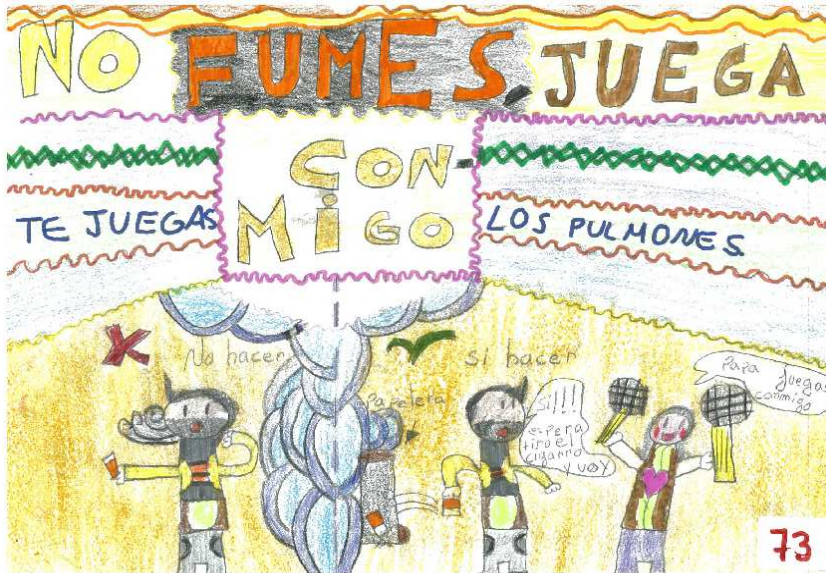 NO FUMES, JUEGA
CON-
MIGO
TE JUEGAS
LOS PULMONES
No hacer
Si hacer
Papelera
Si!!!
espera
tiro el
cigarro
y voy
Papa juegas
conmigo
73